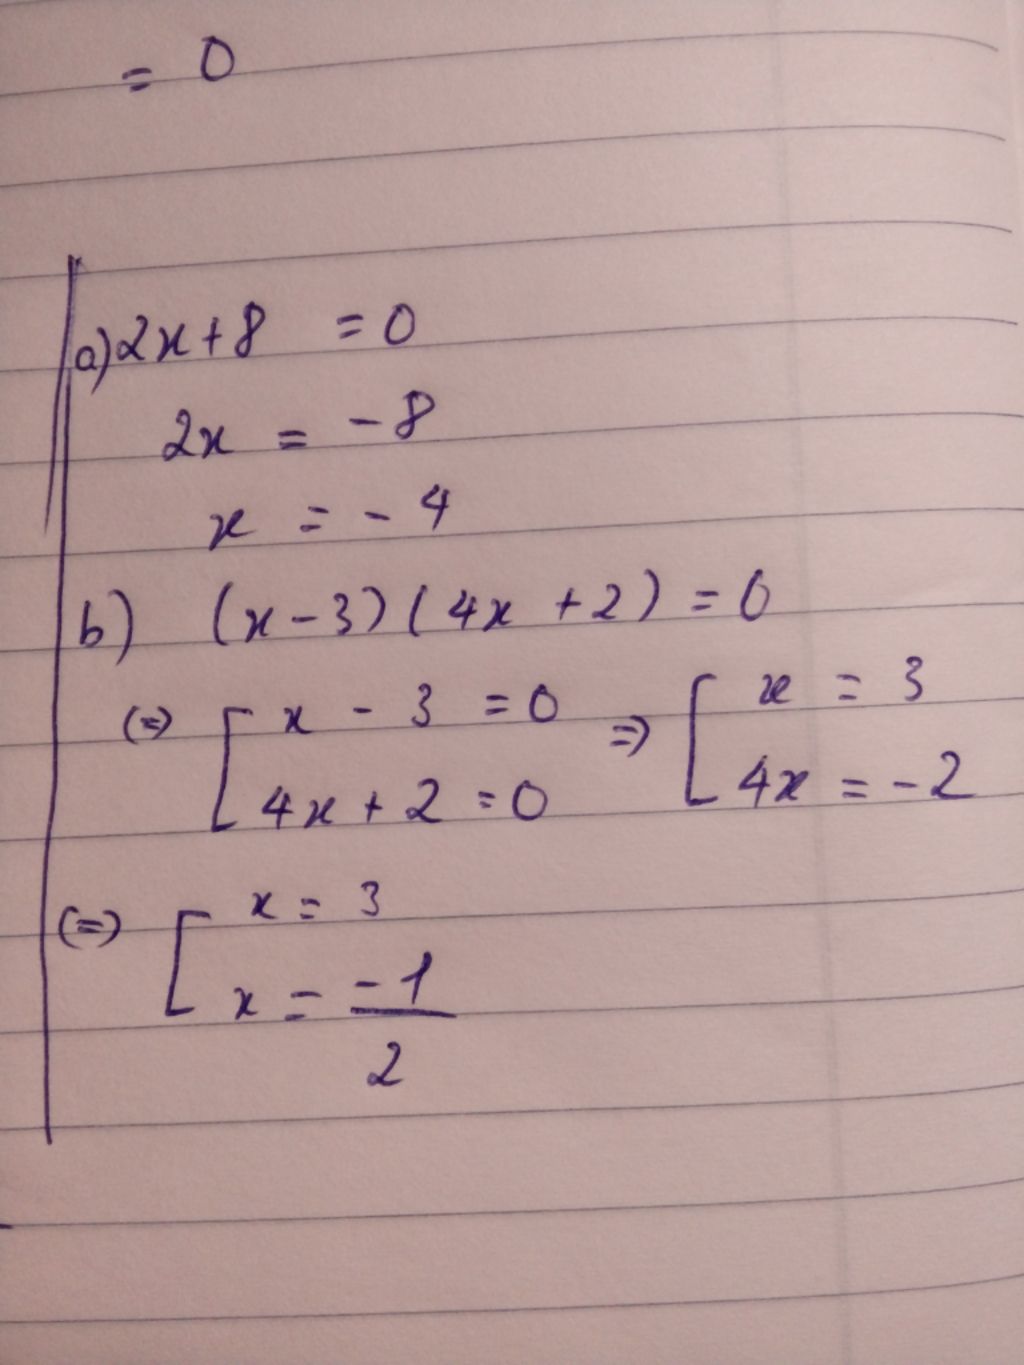 = 0
a) 2x + 8 = 0
2x = -8
x = -4
b) (x - 3)(4x + 2) = 0
(=) [ x - 3 = 0 => [ x = 3
4x + 2 = 0 4x = -2
(=) [ x = 3
x = -1/2